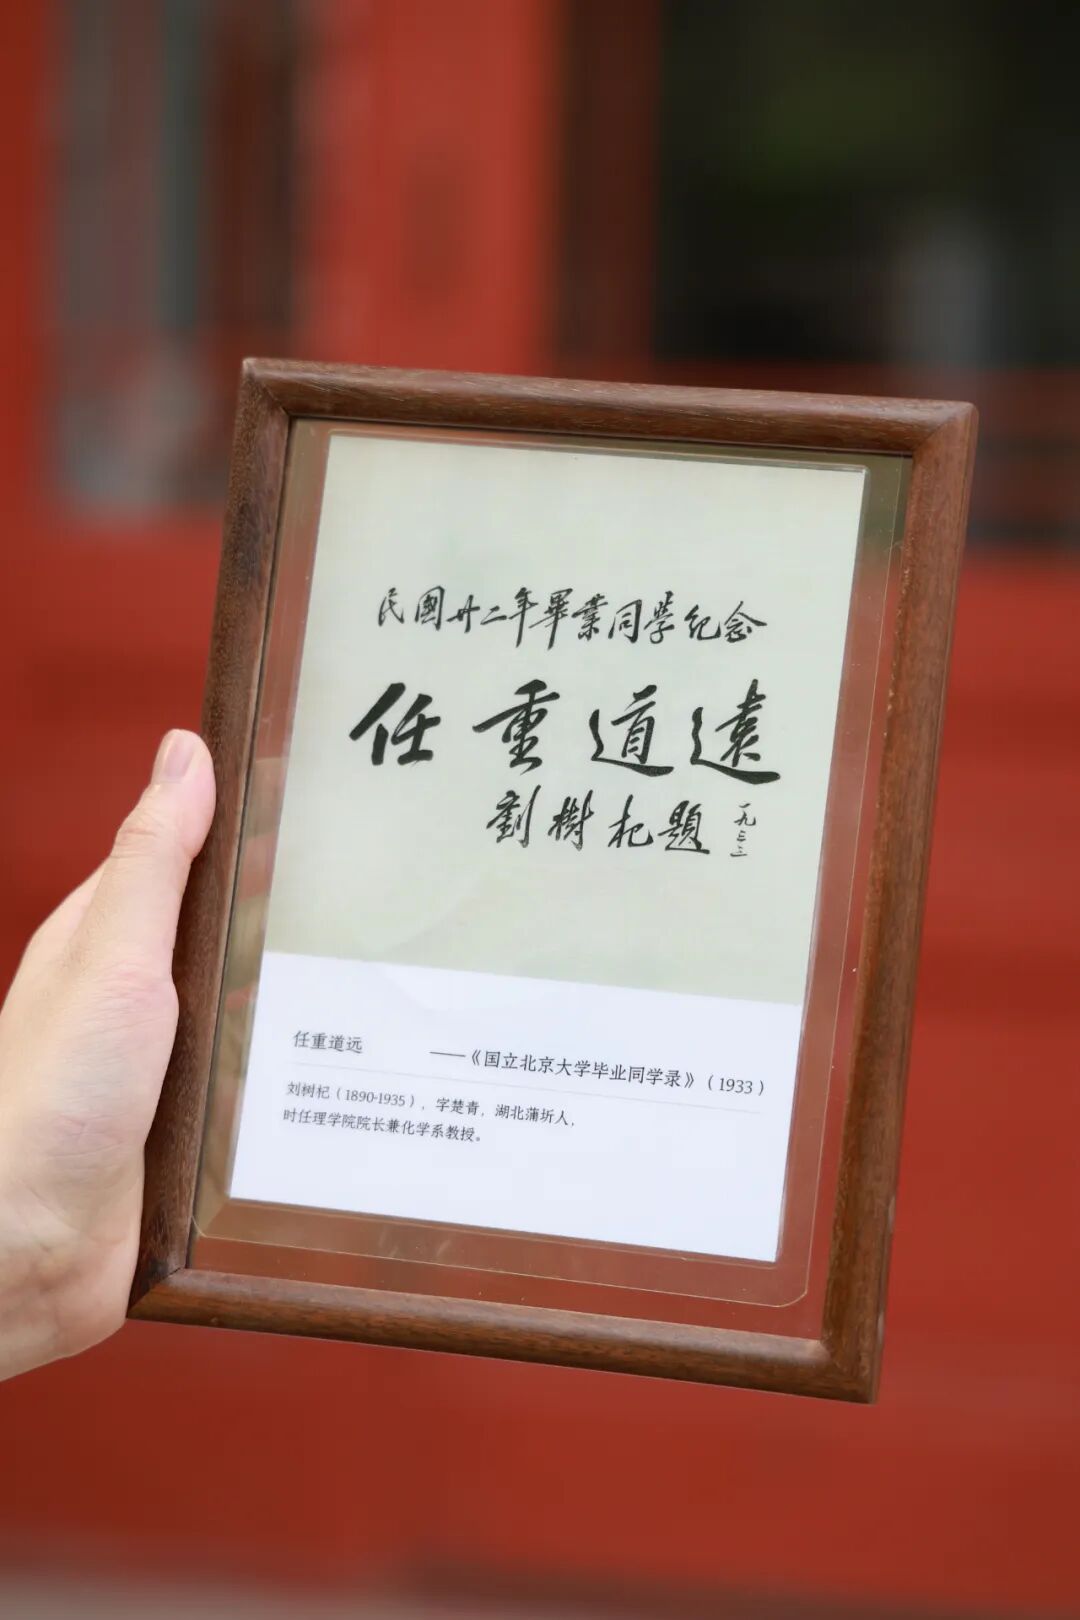 民國廿二年畢業同學紀念
任重道遠
劉樹杞題 一九三三
任重道远 ——《国立北京大学毕业同学录》（1933）
刘树杞（1890-1935），字楚青，湖北蒲圻人，
时任理学院院长兼化学系教授。